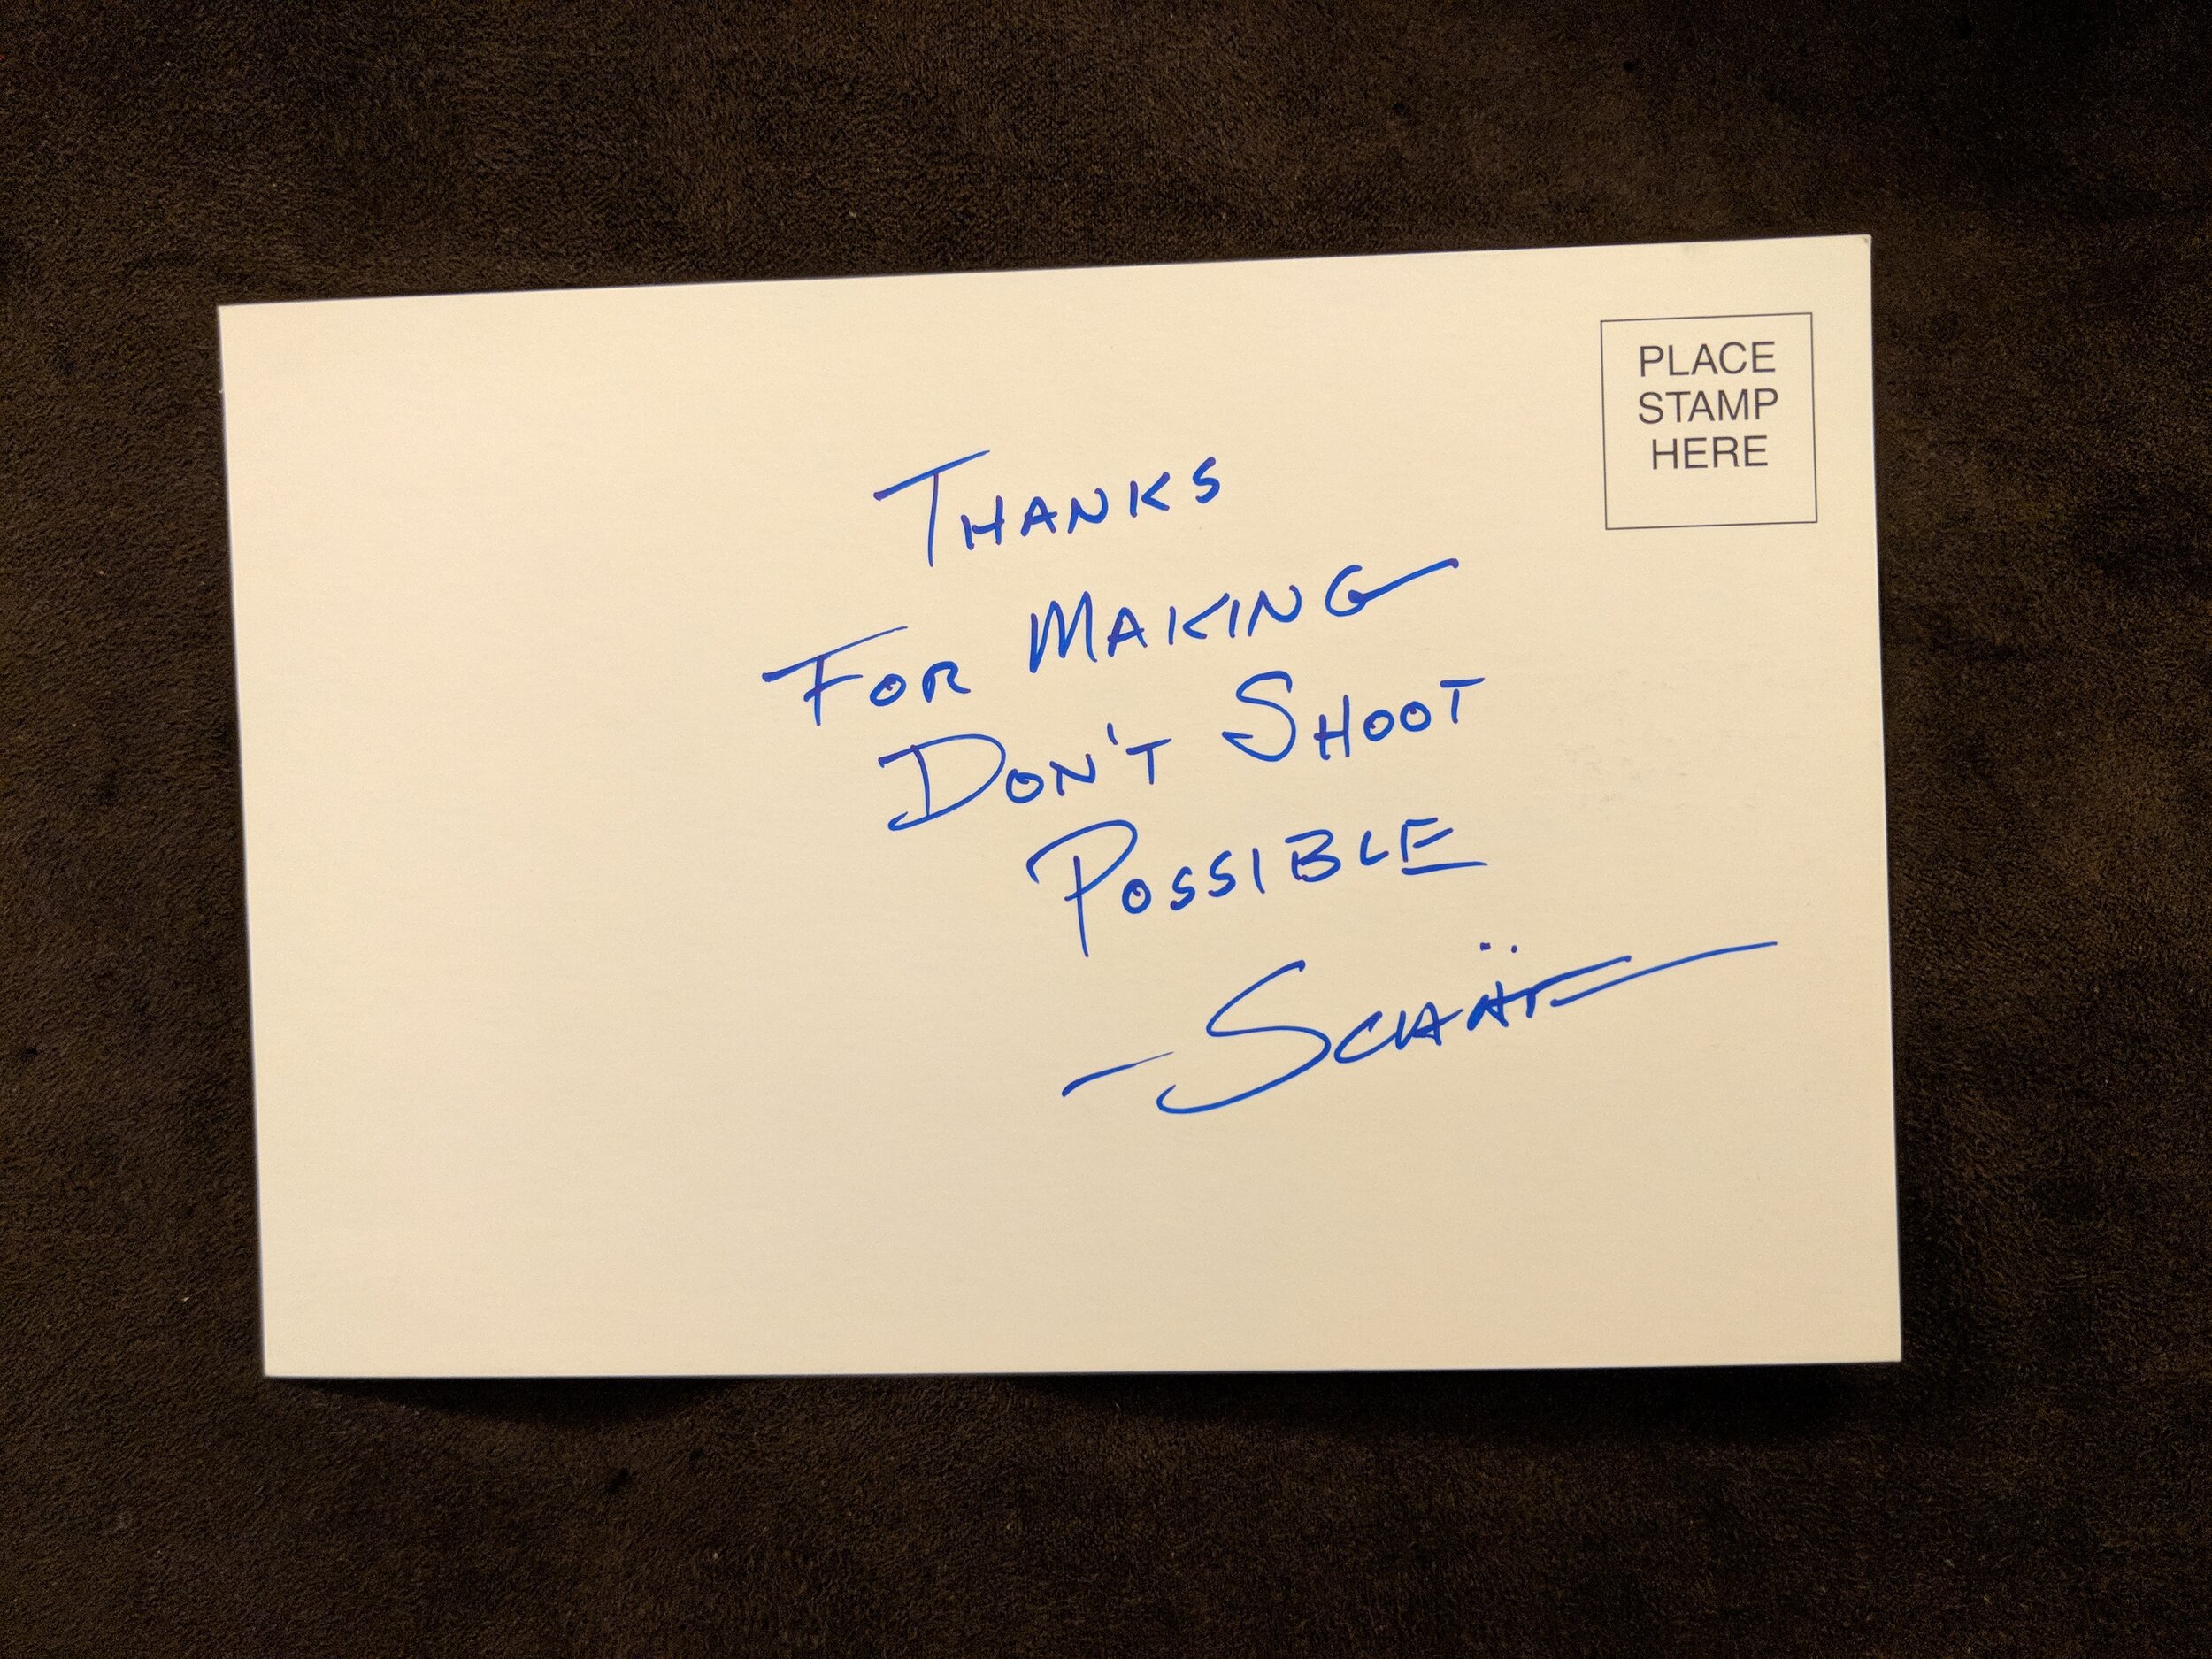 PLACE
STAMP
HERE
THANKS
FOR MAKING
DON'T SHOOT
POSSIBLE